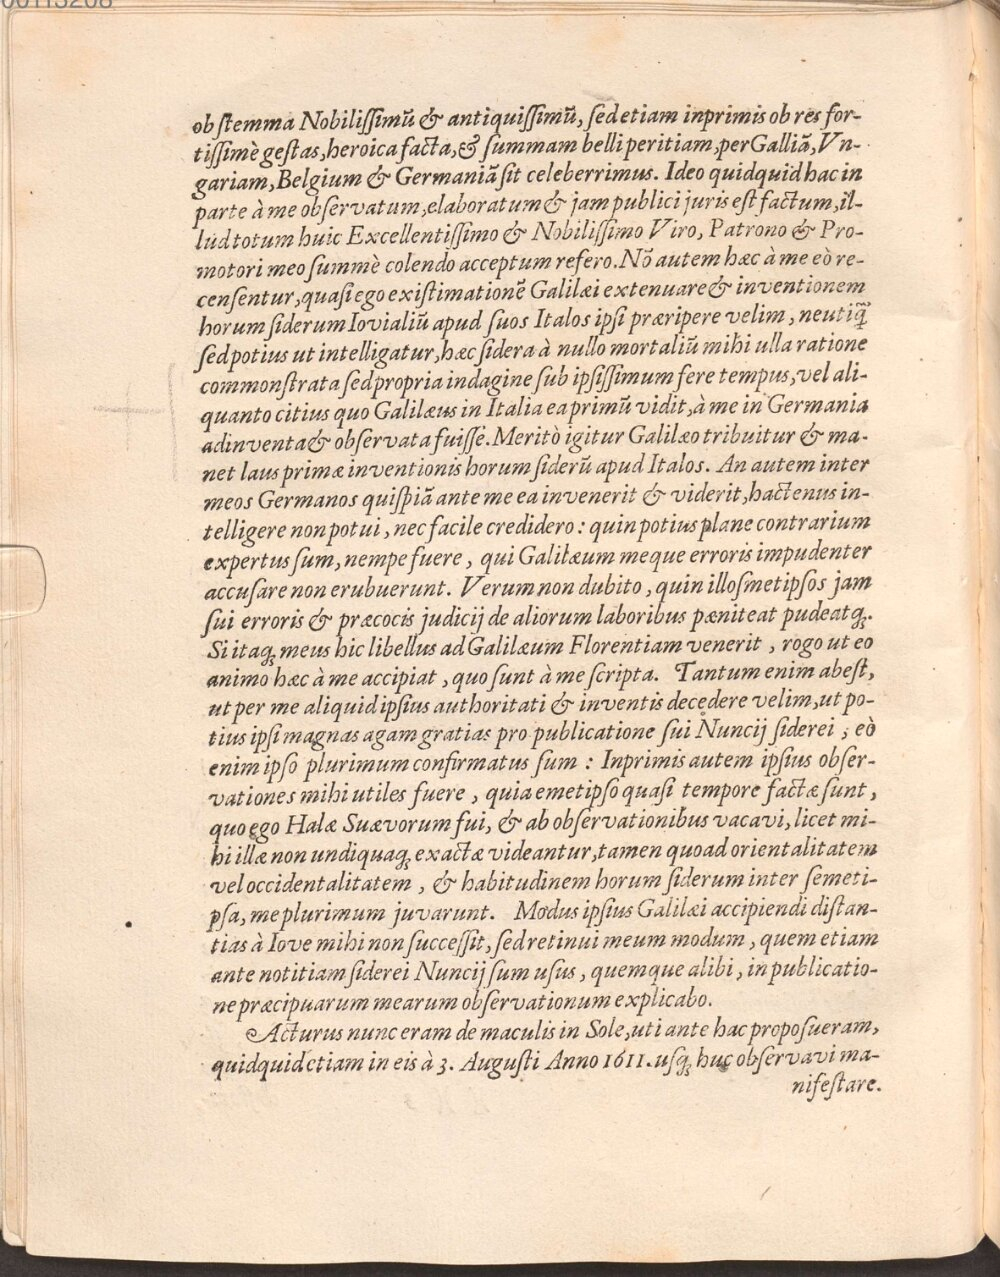 00113208
ob ſtemma Nobiliſſimũ & antiquiſſimũ, ſed etiam inprimis ob res for-
tiſſimè geſtas, heroica facta, & ſummam belli peritiam, per Galliã, Vn-
gariam, Belgium & Germaniã ſit celeberrimus. Ideo quidquid hac in
parte à me obſervatum, elaboratum & jam publici juris eſt factum, il-
lud totum huic Excellentiſſimo & Nobiliſſimo Viro, Patrono & Pro-
motori meo ſummè colendo acceptum refero. Nõ autem hæc à me eò re-
cenſentur, quaſi ego exiſtimationẽ Galilæi extenuare & inventionem
horum ſiderum Iovialiũ apud ſuos Italos ipſi præripere velim, neutiq̃
ſed potius ut intelligatur, hæc ſidera à nullo mortaliũ mihi ulla ratione
commonſtrata ſed propria indagine ſub ipſiſſimum fere tempus, vel ali-
quanto citius quo Galilæus in Italia ea primũ vidit, à me in Germania
adinventa & obſervata fuiſſe. Meritò igitur Galilæo tribuitur & ma-
net laus primæ inventionis horum ſiderũ apud Italos. An autem inter
meos Germanos quiſpiã ante me ea invenerit & viderit, hactenus in-
telligere non potui, nec facile credidero: quin potius plane contrarium
expertus ſum, nempe fuere, qui Galilæum meque erroris impudenter
accuſare non erubuerunt. Verum non dubito, quin illoſmetipſos jam
ſui erroris & præcocis judicij de aliorum laboribus pæniteat pudeatq́;.
Si itaq́; meus hic libellus ad Galilæum Florentiam venerit, rogo ut eo
animo hæc à me accipiat, quo ſunt à me ſcripta. Tantum enim abeſt,
ut per me aliquid ipſius authoritati & inventis decedere velim, ut po-
tius ipſi magnas agam gratias pro publicatione ſui Nuncij ſiderei, eò
enim ipſo plurimum confirmatus ſum: Inprimis autem ipſius obſer-
vationes mihi utiles fuere, quia emetipſo quaſi tempore factæ ſunt,
quo ego Halæ Suævorum fui, & ab obſervationibus vacavi, licet mi-
hi illæ non undiquaq́; exactæ videantur, tamen quoad orientalitatem
vel occidentalitatem, & habitudinem horum ſiderum inter ſemeti-
pſa, me plurimum juvarunt. Modus ipſius Galilæi accipiendi diſtan-
tias à Iove mihi non ſucceſſit, ſed retinui meum modum, quem etiam
ante notitiam ſiderei Nuncij ſum uſus, quemque alibi, in publicatio-
ne præcipuarum mearum obſervationum explicabo.
Acturus nunc eram de maculis in Sole, uti ante hac propoſueram,
quidquid etiam in eis à 3. Auguſti Anno 1611. uſq́; huc obſervavi ma-
nifeſtare.